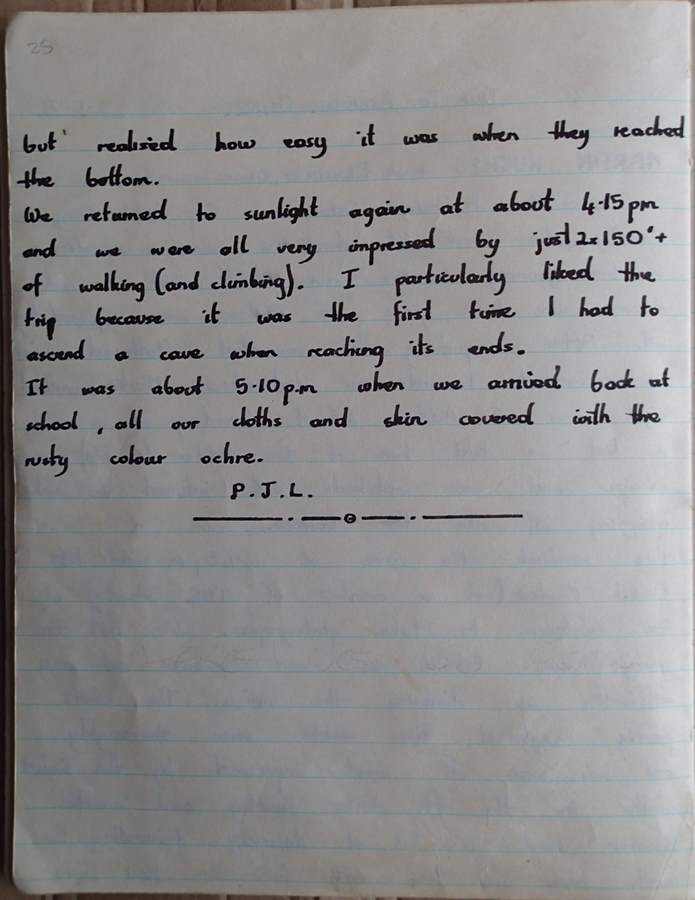 25
but realised how easy it was when they reached
the bottom.
We returned to sunlight again at about 4.15pm
and we were all very impressed by just 2x150'+
of walking (and climbing). I particularly liked the
trip because it was the first time I had to
ascend a cave when reaching its ends.
It was about 5.10p.m when we arrived back at
school, all our cloths and skin covered with the
rusty colour ochre.
P.J.L.